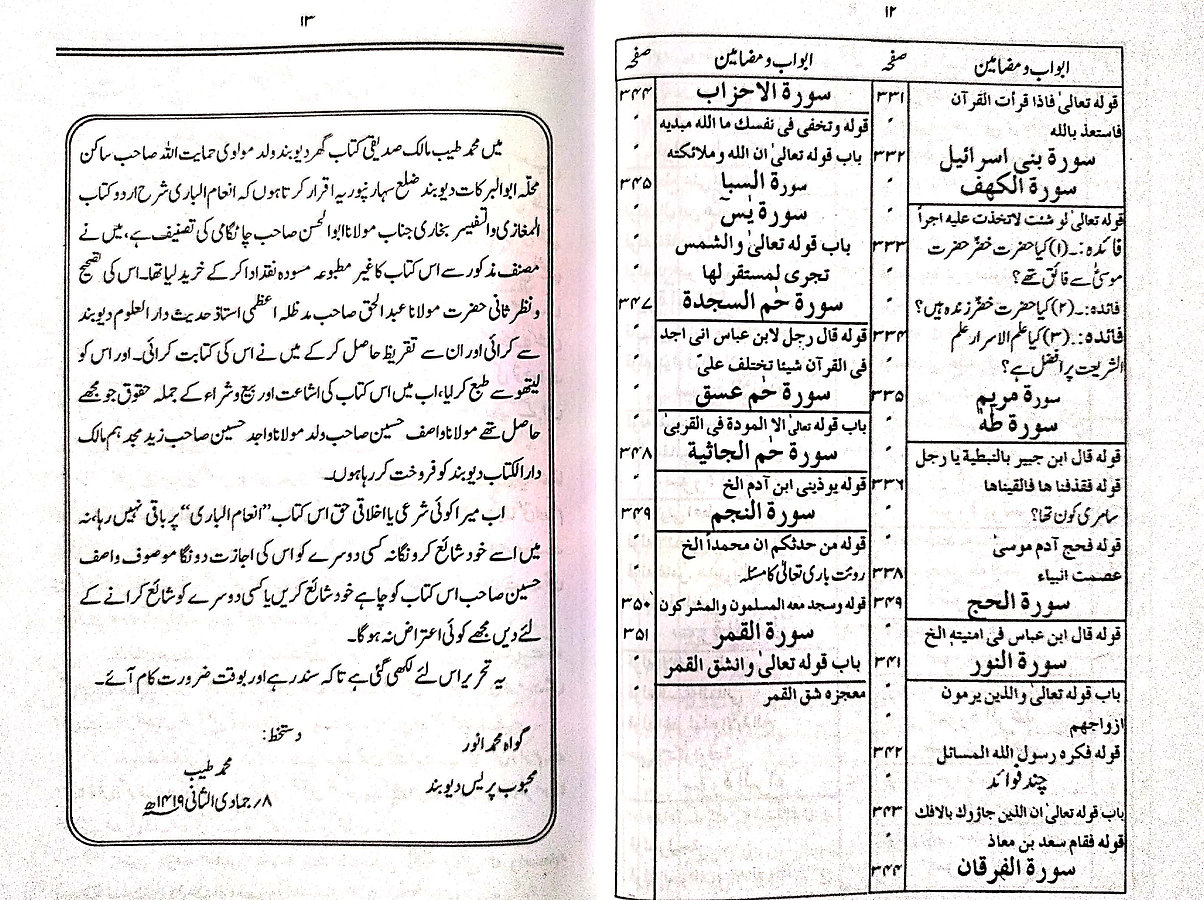 ۱۲
ابواب و مضامین صفحہ
قوله تعالیٰ فاذا قرأت القرآن ۳۳۱
فاستعذ بالله 〃
سورة بنی اسرائیل ۳۳۲
سورة الکهف 〃
قوله تعالیٰ لو شئت لاتخذت علیه اجراً 〃
فائدہ:۔(۱) کیا حضرت خضرؑ حضرت ۳۳۳
موسیٰؑ سے فائق تھے؟ 〃
فائدہ:۔(۲) کیا حضرت خضرؑ زندہ ہیں؟ 〃
فائدہ:۔(۳) کیا علم الاسرار علم ۳۳۴
الشریعت پر افضل ہے؟ 〃
سورة مریم ۳۳۵
سورة طٰهٰ 〃
قوله قال ابن جبیر بالنبطیة یا رجل 〃
قوله فقذفنا ها فالقیناها ۳۳۶
سامری کون تھا؟ 〃
قوله فحج آدم موسیٰ 〃
عصمت انبیاء ۳۳۸
سورة الحج ۳۴۹
قوله قال ابن عباس فی امنیتهٖ الخ 〃
سورة النور ۳۴۱
باب قوله تعالیٰ والذین یرمون 〃
ازواجهم 〃
قوله فکره رسول الله المسائل ۳۴۲
چند فوائد 〃
باب قوله تعالیٰ ان الذین جاؤرك بالافك ۳۴۳
قوله فقام سعد بن معاذ 〃
سورة الفرقان ۳۴۴
ابواب و مضامین صفحہ
سورة الاحزاب ۳۴۴
قوله وتخفی فی نفسك ما الله مبدیه 〃
باب قوله تعالیٰ ان الله وملائکته 〃
سورة السبا ۳۴۵
سورة یٰسٓ 〃
باب قوله تعالیٰ والشمس 〃
تجری لمستقر لها 〃
سورة حٰم السجدة ۳۴۷
قوله قال رجل لابن عباس انی اجد 〃
فی القرآن شیئا تختلف علیّ 〃
سورة حٰم عسق 〃
باب قوله تعالیٰ الا المودة فی القربیٰ 〃
سورة حٰم الجاثیة ۳۴۸
قوله یوذینی ابن آدم الخ 〃
سورة النجم ۳۴۹
قوله من حدثکم ان محمداً الخ 〃
روئت باری تعالیٰ کا مسئلہ 〃
قوله وسجد معه المسلمون والمشرکون ۳۵۰
سورة القمر ۳۵۱
باب قوله تعالیٰ وانشق القمر 〃
معجزہ شق القمر 〃
۱۳
میں محمد طیب مالک صدیقی کتاب گھر دیوبند ولد مولوی حمایت اللہ صاحب ساکن
محلّہ ابوالبرکات دیوبند ضلع سہارنپور یہ اقرار کرتا ہوں کہ انعام الباری شرح اردو کتاب
المغازی والتفیسر بخاری جناب مولانا ابوالحسن صاحب چاٹگامی کی تصنیف ہے، میں نے
مصنف مذکور سے اس کتاب کا غیر مطبوعہ مسودہ نقد ادا کر کے خرید لیا تھا۔ اس کی تصحیح
و نظر ثانی حضرت مولانا عبدالحق صاحب مدظلہ اعظمی استاذ حدیث دارالعلوم دیوبند
سے کرائی اور ان سے تقریظ حاصل کر کے میں نے اس کی کتابت کرائی۔ اور اس کو
لیتھو سے طبع کرلیا، اب میں اس کتاب کی اشاعت اور بیع وشراء کے جملہ حقوق جو مجھے
حاصل تھے مولانا واصف حسین صاحب ولد مولانا واجد حسین صاحب زید مجدہم مالک
دارالکتاب دیوبند کو فروخت کر رہا ہوں۔
اب میرا کوئی شرعی یا اخلاقی حق اس کتاب ”انعام الباری“ پر باقی نہیں رہا، نہ
میں اسے خود شائع کرونگا نہ کسی دوسرے کو اس کی اجازت دونگا موصوف واصف
حسین صاحب اس کتاب کو چاہے خود شائع کریں یا کسی دوسرے کو شائع کرانے کے
لئے دیں مجھے کوئی اعتراض نہ ہوگا۔
یہ تحریر اس لئے لکھی گئی ہے تاکہ سند رہے اور بوقت ضرورت کام آئے۔
گواہ محمد انور
محبوب پریس دیوبند
دستخط:
محمد طیب
۸؍ جمادی الثانی ۱۴۱۹ھ